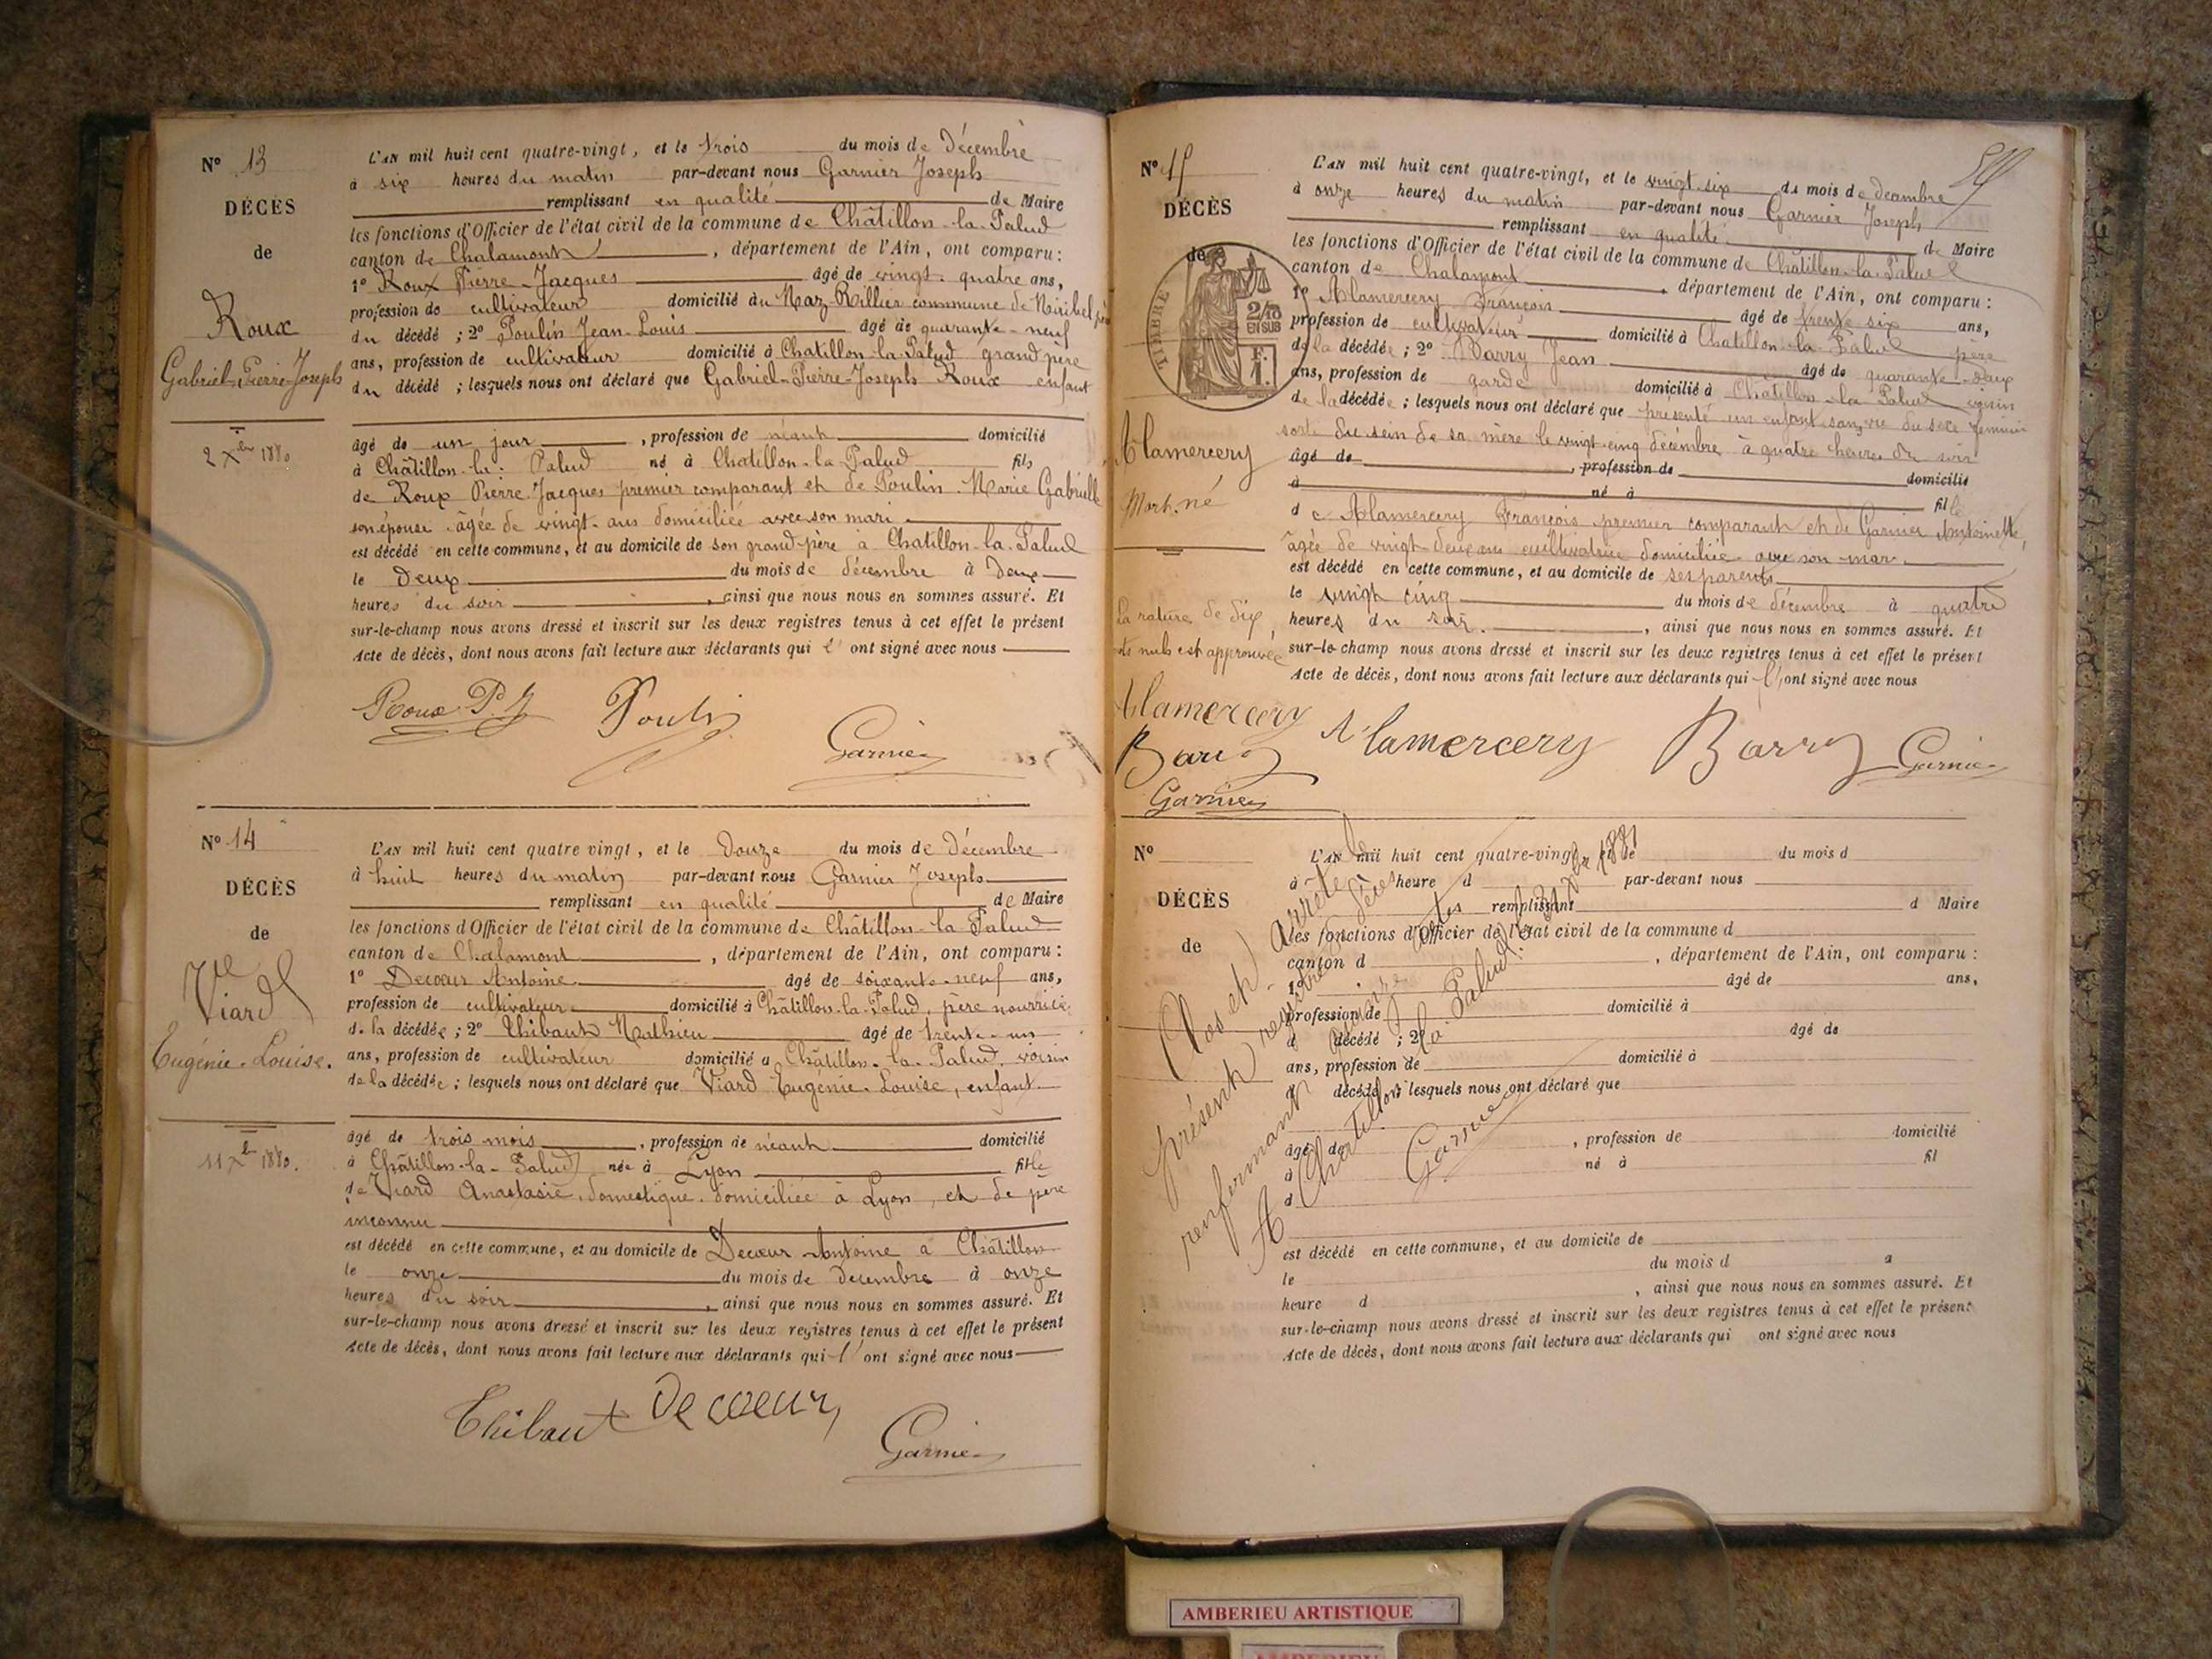 N° 13
DÉCÈS
de
Roux
Gabriel-Pierre-Joseph
2 Xbre 1880
L'AN mil huit cent quatre-vingt, et le trois du mois de Décembre
à six heures du matin par-devant nous Garnier Joseph
remplissant en qualité de Maire
les fonctions d'Officier de l'état civil de la commune de Châtillon-la-Palud
canton de Chalamont, département de l'Ain, ont comparu :
1° Roux Pierre-Jacques âgé de vingt-quatre ans,
profession de cultivateur domicilié au Maz-Rillier commune de Miribel père
du décédé ; 2° Poulin Jean-Louis âgé de quarante-neuf
ans, profession de cultivateur domicilié à Chatillon-la-Palud grand père
du décédé ; lesquels nous ont déclaré que Gabriel-Pierre-Joseph Roux enfant
âgé de un jour, profession de néant domicilié
à Châtillon-la-Palud né à Chatillon-la-Palud fils
de Roux Pierre-Jacques premier comparant et de Poulin Marie Gabrielle
son épouse âgée de vingt-ans domiciliée avec son mari
est décédé en cette commune, et au domicile de son grand-père à Chatillon-la-Palud
le Deux du mois de décembre à Deux
heures du soir, ainsi que nous nous en sommes assuré. Et
sur-le-champ nous avons dressé et inscrit sur les deux registres tenus à cet effet le présent
Acte de décès, dont nous avons fait lecture aux déclarants qui l' ont signé avec nous
Roux P. J Poulin Garnier
N° 14
DÉCÈS
de
Viard
Eugénie-Louise.
11 Xbre 1880.
L'AN mil huit cent quatre vingt, et le Douze du mois de Décembre
à huit heures du matin par-devant nous Garnier Joseph
remplissant en qualité de Maire
les fonctions d'Officier de l'état civil de la commune de Châtillon-la-Palud
canton de Chalamont, département de l'Ain, ont comparu :
1° Decœur Antoine âgé de soixante-neuf ans,
profession de cultivateur domicilié à Châtillon-la-Palud, père nourricier
de la décédée ; 2° Thibaut Mathieu âgé de trente-un
ans, profession de cultivateur domicilié à Châtillon-la-Palud, voisin
de la décédée ; lesquels nous ont déclaré que Viard Eugénie-Louise, enfant
âgé de trois mois, profession de néant domicilié
à Châtillon-la-Palud née à Lyon fille
de Viard Anastasie, domestique domiciliée à Lyon, et de père
inconnu
est décédé en cette commune, et au domicile de Decœur Antoine à Châtillon
le onze du mois de décembre à onze
heures du soir, ainsi que nous nous en sommes assuré. Et
sur-le-champ nous avons dressé et inscrit sur les deux registres tenus à cet effet le présent
Acte de décès, dont nous avons fait lecture aux déclarants qui l' ont signé avec nous
Thibaut Decoeur Garnier
N° 15
DÉCÈS
de
TIMBRE
2/10
EN SUS
F.
1.
Alamercery
Mort-né
La rature de dix
nuls est approuvée
Alamercery
Barry
Garnier
L'AN mil huit cent quatre-vingt, et le vingt-six du mois de décembre
à onze heures du matin par-devant nous Garnier Joseph
remplissant en qualité de Maire
les fonctions d'Officier de l'état civil de la commune de Châtillon-la-Palud
canton de Chalamont, département de l'Ain, ont comparu :
1° Alamercery François âgé de trente six ans,
profession de cultivateur domicilié à Chatillon-la-Palud père
de la décédée ; 2° Barry Jean âgé de quarante-deux
ans, profession de garde domicilié à Chatillon-la-Palud voisin
de la décédée ; lesquels nous ont déclaré que présenté un enfant sans vie du sexe féminin
sorti du sein de sa mère le vingt-cinq décembre à quatre heures du soir
âgé de, profession de domicilié
à né à fille
de Alamercery François premier comparant et de Garnier Antoinette,
âgée de vingt-deux ans cultivatrice domiciliée avec son mari
est décédé en cette commune, et au domicile de ses parents
le vingt cinq du mois de décembre à quatre
heures du soir, ainsi que nous nous en sommes assuré. Et
sur-le-champ nous avons dressé et inscrit sur les deux registres tenus à cet effet le présent
Acte de décès, dont nous avons fait lecture aux déclarants qui l' ont signé avec nous
Alamercery Barry Garnier
N°
DÉCÈS
de
L'AN mil huit cent quatre-vingt, et le du mois d
à heure d par-devant nous
remplissant d Maire
les fonctions d'Officier de l'état civil de la commune d
canton d, département de l'Ain, ont comparu :
1° âgé de ans,
profession de domicilié à
d décédé ; 2° âgé de
ans, profession de domicilié à
d décédé ; lesquels nous ont déclaré que
âgé de, profession de domicilié
à né à fil
d
est décédé en cette commune, et au domicile de
le du mois d à
heure d, ainsi que nous nous en sommes assuré. Et
sur-le-champ nous avons dressé et inscrit sur les deux registres tenus à cet effet le présent
Acte de décès, dont nous avons fait lecture aux déclarants qui ont signé avec nous
Clos et arrêté le
présent registre de décès
renfermant quinze actes
A Chatillon la Palud
Garnier
AMBERIEU ARTISTIQUE
AMBERIEU